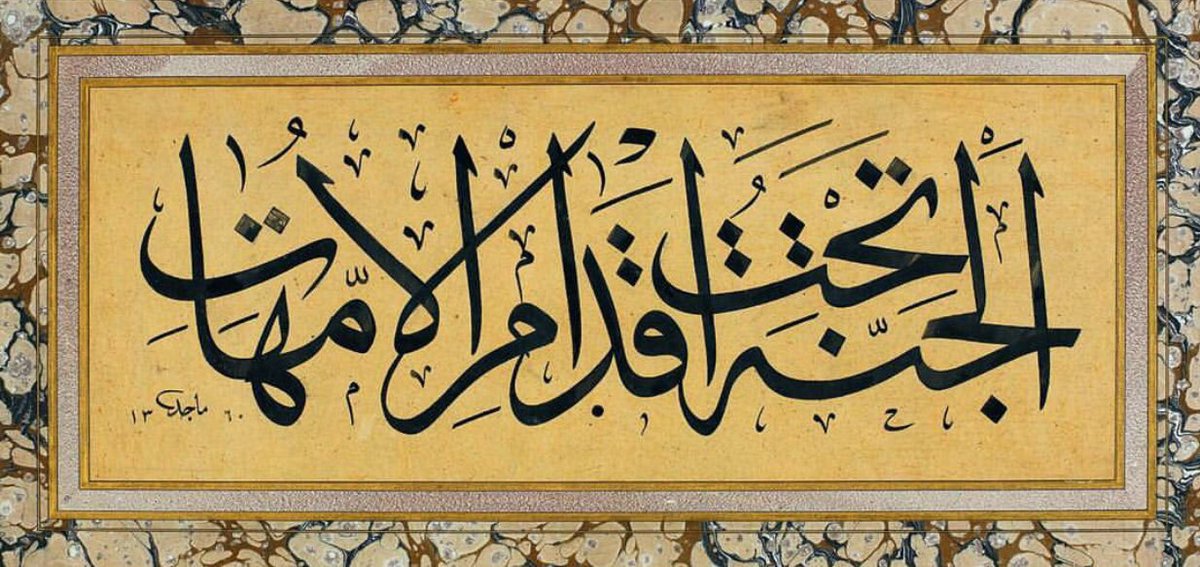 الجنّة تحت اقدام الامّهات
ماجد ١٣٦٠